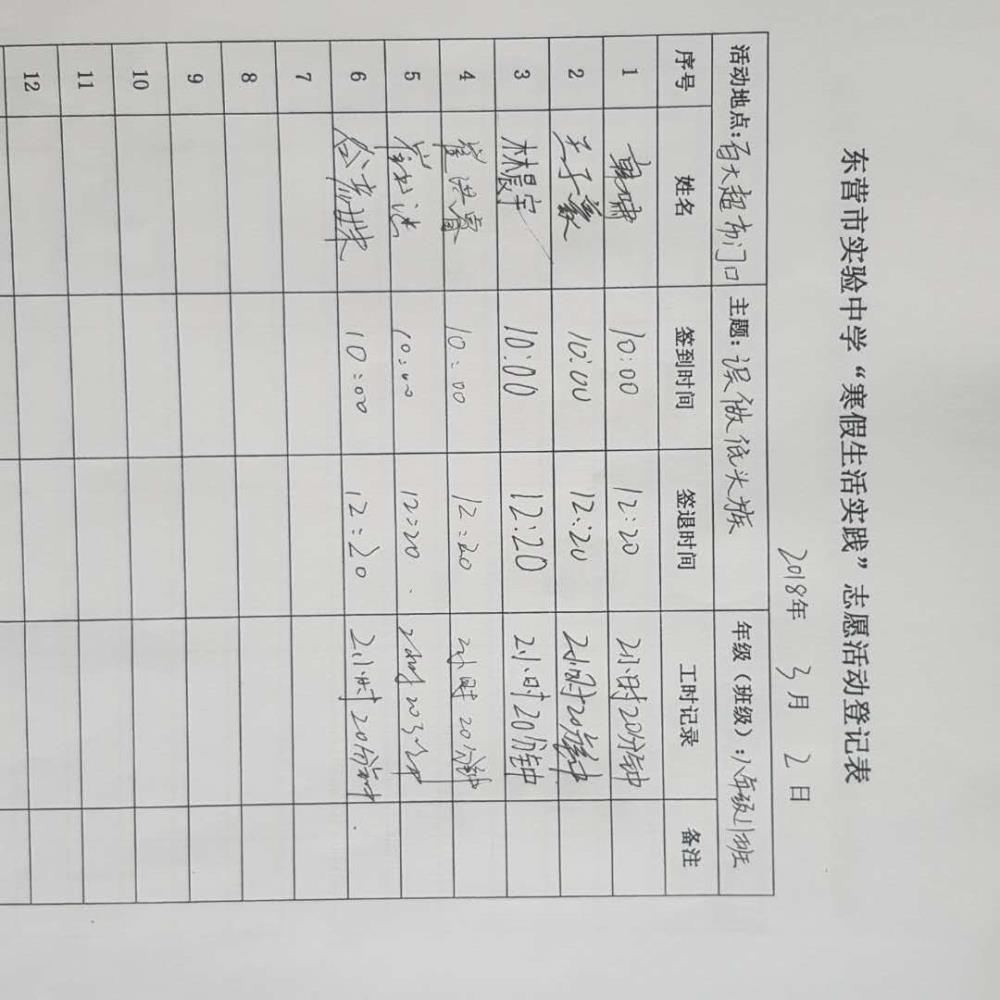 东营市实验中学“寒假生活实践”志愿活动登记表
2018年 3月 2日
活动地点:百大超市门口 主题:误做低头族 年级(班级):八年级11班
序号 姓名 签到时间 签退时间 工时记录 备注
1 韩啸 10:00 12:20 2小时20分钟
2 10:00 12:20 2小时20分钟
3 林晨宇 10:00 12:20 2小时20分钟
4 崔洪睿 10:00 12:20 2小时20分钟
5 10:00 12:20
6 10:00 12:20 2小时20分钟
7
8
9
10
11
12